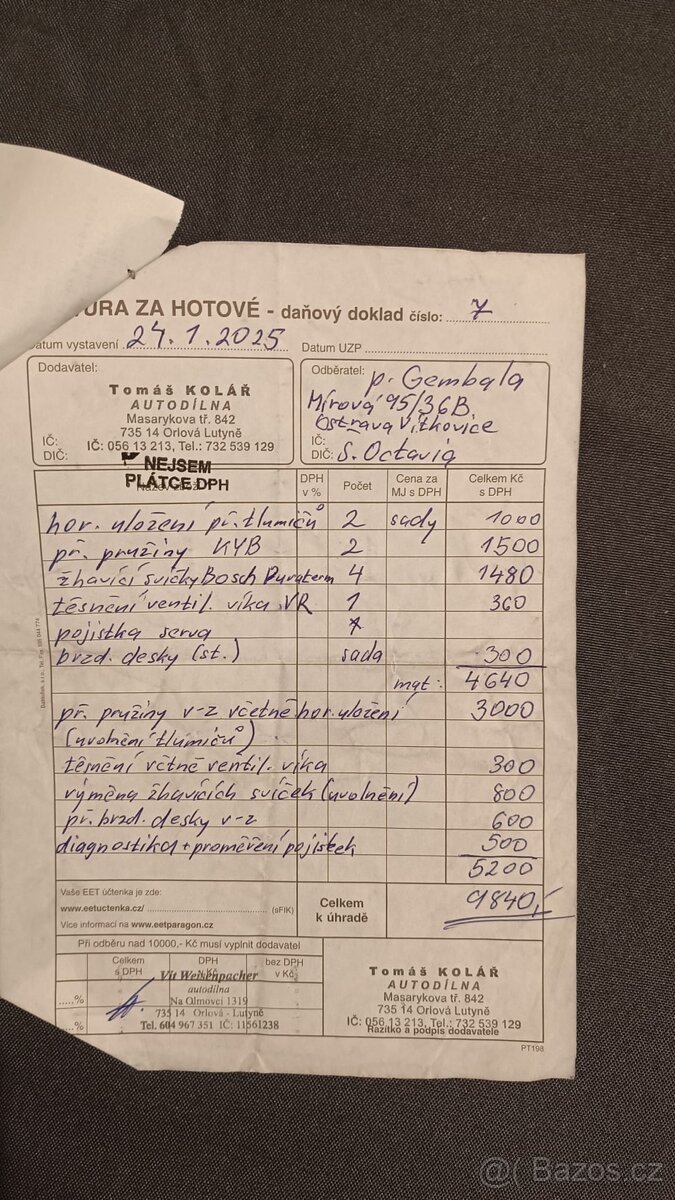 URA ZA HOTOVÉ - daňový doklad číslo: 7
Datum vystavení 24.1.2025 Datum UZP
Dodavatel:
Tomáš KOLÁŘ
AUTODÍLNA
Masarykova tř. 842
735 14 Orlová Lutyně
IČ: IČ: 056 13 213, Tel.: 732 539 129
DIČ:
NEJSEM
PLÁTCE DPH
Odběratel: p. Gembala
Mírová 95/36B
Ostrava Vítkovice
IČ:
DIČ: Š. Octavia
DPH v % Počet Cena za MJ s DPH Celkem Kč s DPH
hor. uložení př. tlumičů 2 sady 1000
př. pružiny KYB 2 1500
žhavící svíčky Bosch Duraterm 4 1480
těsnění ventil. víka VR 1 360
pojistka serva
brzd. desky (st.) sada 300
mat: 4640
př. pružiny v-z včetně hor. uložení 3000
(uvolnění tlumičů)
těsnění včtně ventil. víka 300
výměna žhavících svíček (uvolnění) 800
př. brzd. desky v-z 600
diagnostika + proměření pojistek 500
5200
Vaše EET účtenka je zde:
www.eetuctenka.cz/ (sFIK)
Více informací na www.eetparagon.cz
Celkem
k úhradě
9840,-
Při odběru nad 10000,- Kč musí vyplnit dodavatel
Celkem s DPH DPH v Kč bez DPH v Kč
.....%
.....%
Vít Weisenpacher
autodílna
Na Olmovci 1319
735 14 Orlová - Lutyně
Tel. 604 967 351 IČ: 11561238
Tomáš KOLÁŘ
AUTODÍLNA
Masarykova tř. 842
735 14 Orlová Lutyně
IČ: 056 13 213, Tel.: 732 539 129
Razítko a podpis dodavatele
PT198
@( Bazos.cz